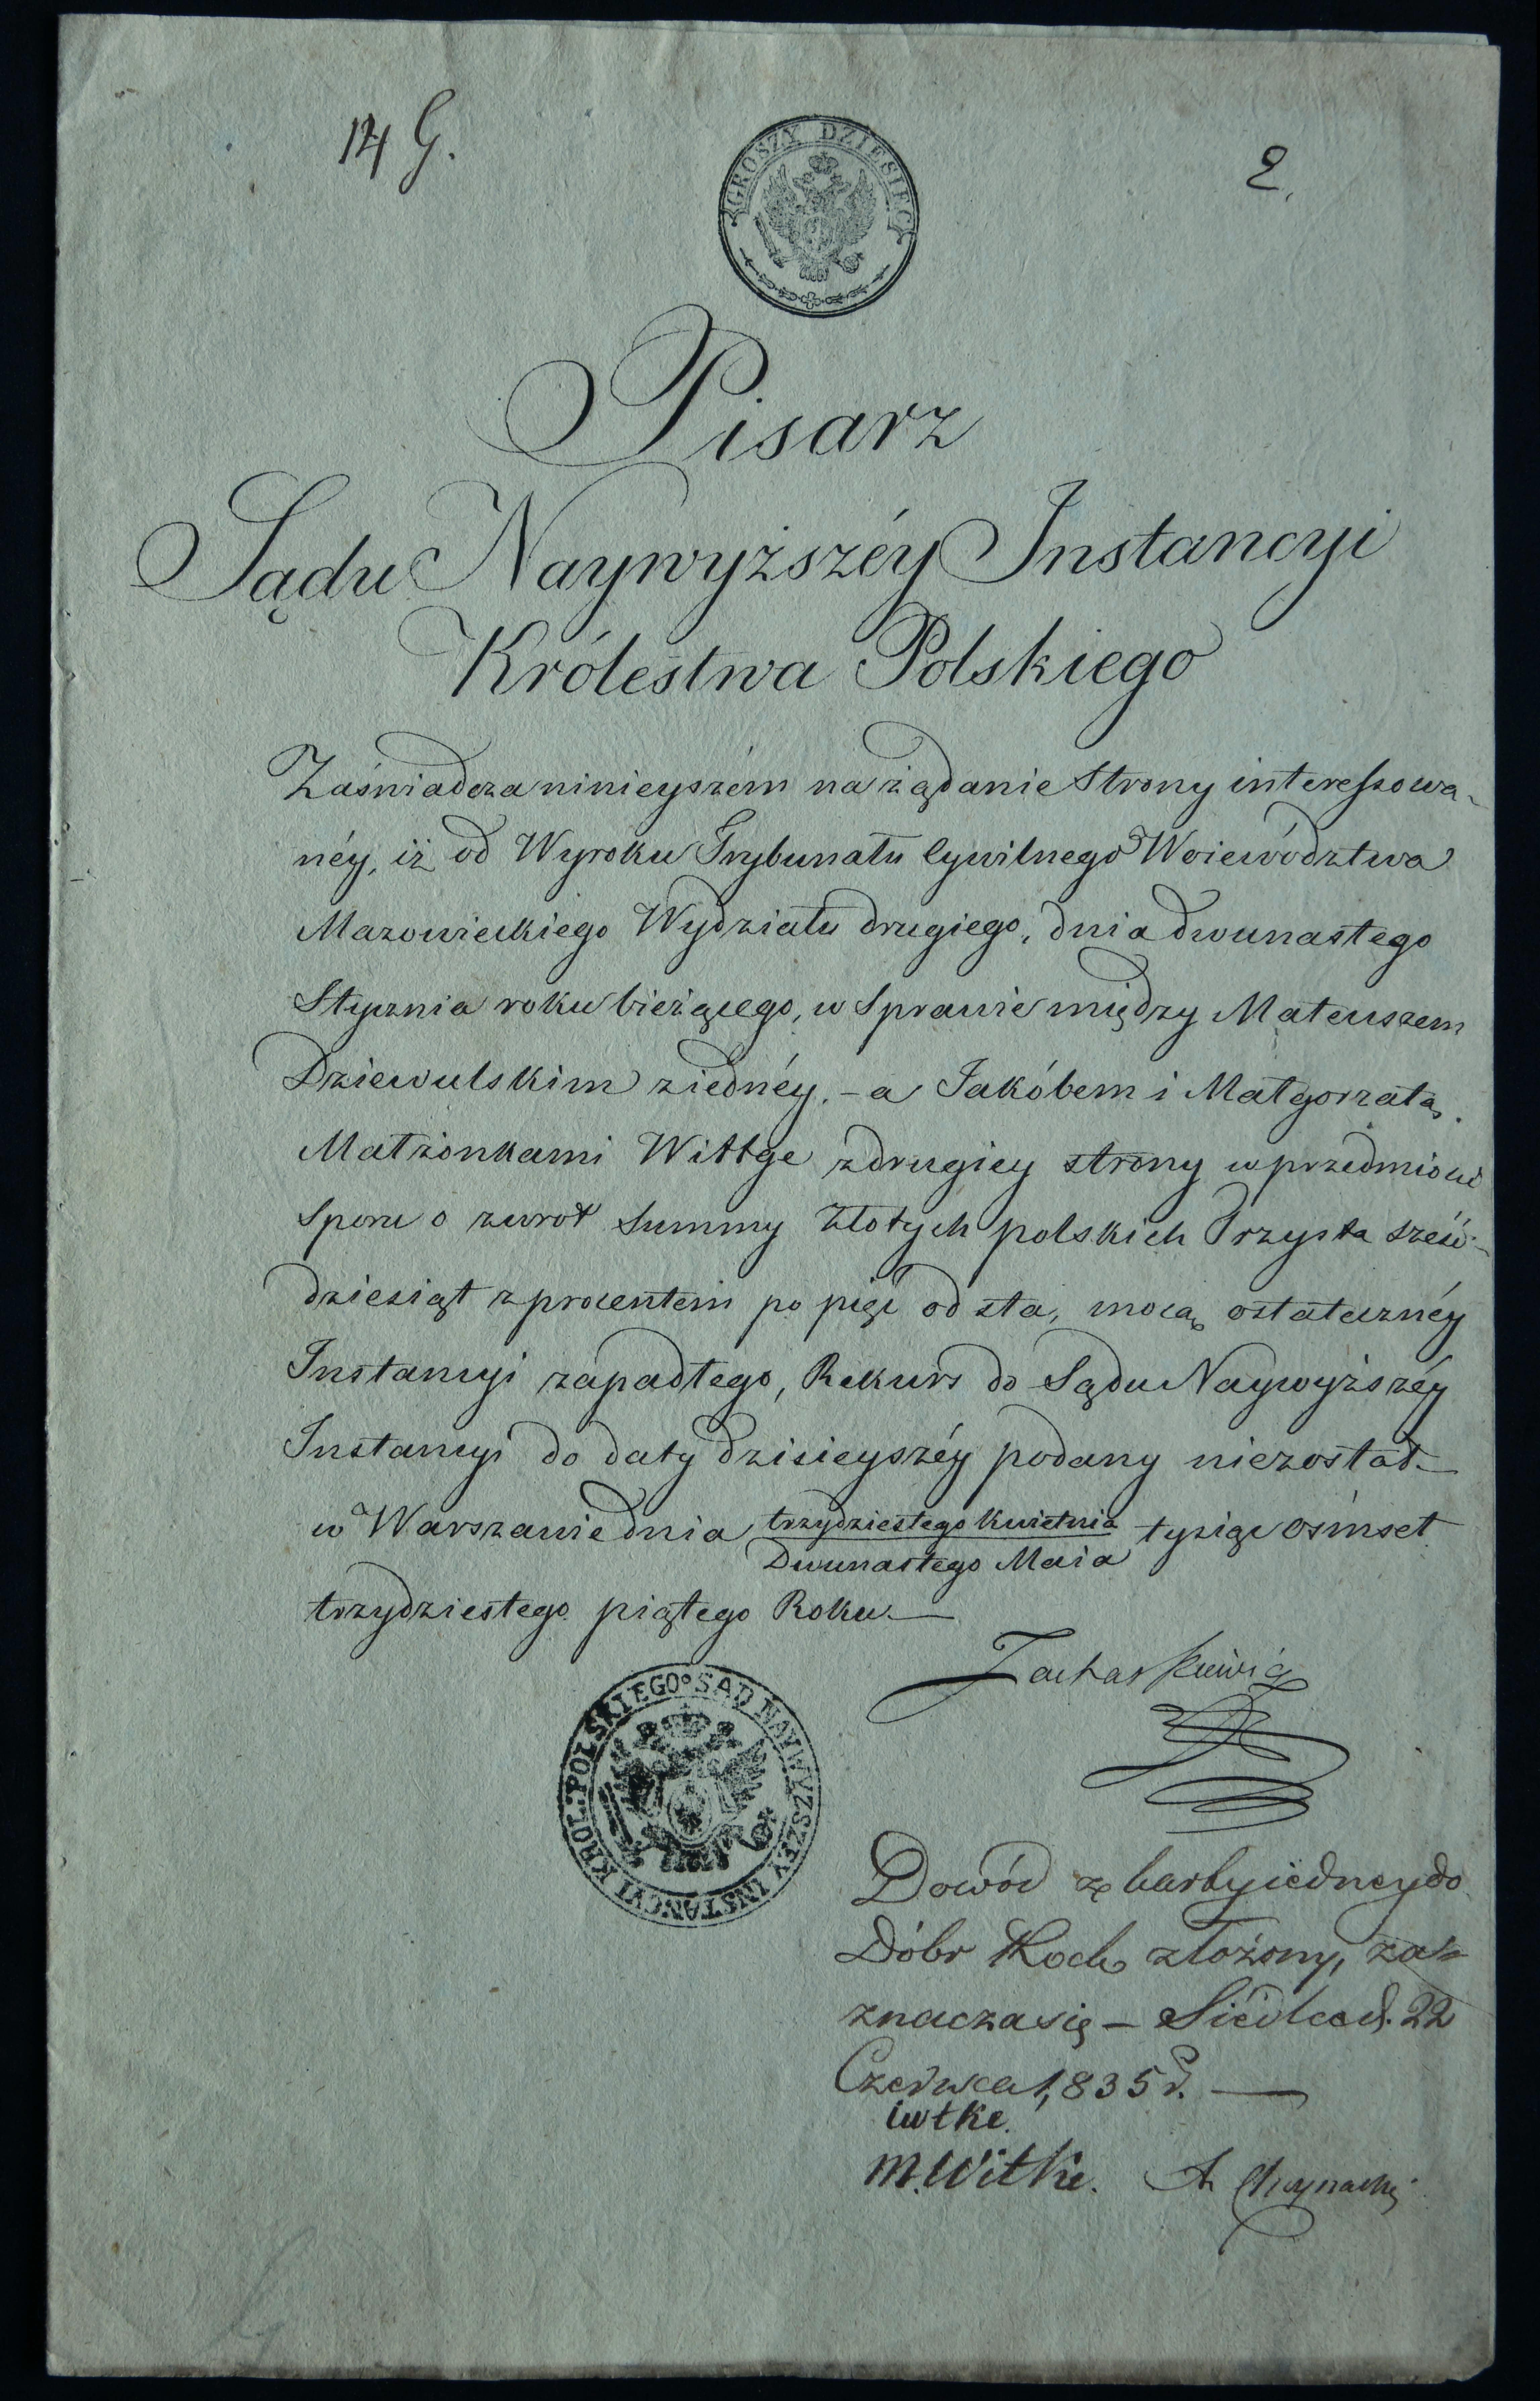 14 G.
2.
GROSZY DZIESIĘĆ
Pisarz
Sądu Naywyższéy Instancyi
Królestwa Polskiego
Zaświadcza ninieyszém na żądanie Strony interessowa-
néy, iż od Wyroku Trybunału Cywilnego Woiewództwa
Mazowieckiego Wydziału drugiego, dnia dwunastego
Stycznia roku bieżącego, w Sprawie między Mateuszem
Dziewulskim ziednéy, - a Jakóbem i Małgorzatą
Małżonkami Wittge zdrugiey strony w przedmiocie
Sporu o zwrot Summy Złotych polskich Trzysta sześć-
dziesiąt z procentem po pięć od sta, mocą ostateczney
Instancyi zapadłego, Rekurs do Sądu Naywyższéy
Instancyi do daty dzisieyszéy podany niezostał. —
w Warszawie dnia trzydziestego Kwietnia tysiąc ośmset
Dwunastego Maia
trzydziestego piątego Roku. —
Zacharkiewicz
SĄD NAYWYZSZEY INSTANCYI KROL: POLSKIEGO
Dowód ze karty iedney do
Dóbr Kock złożony, za-
znacza się — Siedlce d. 22
Czerwca 1835 r. —
iwtke.
M. Witke. A.